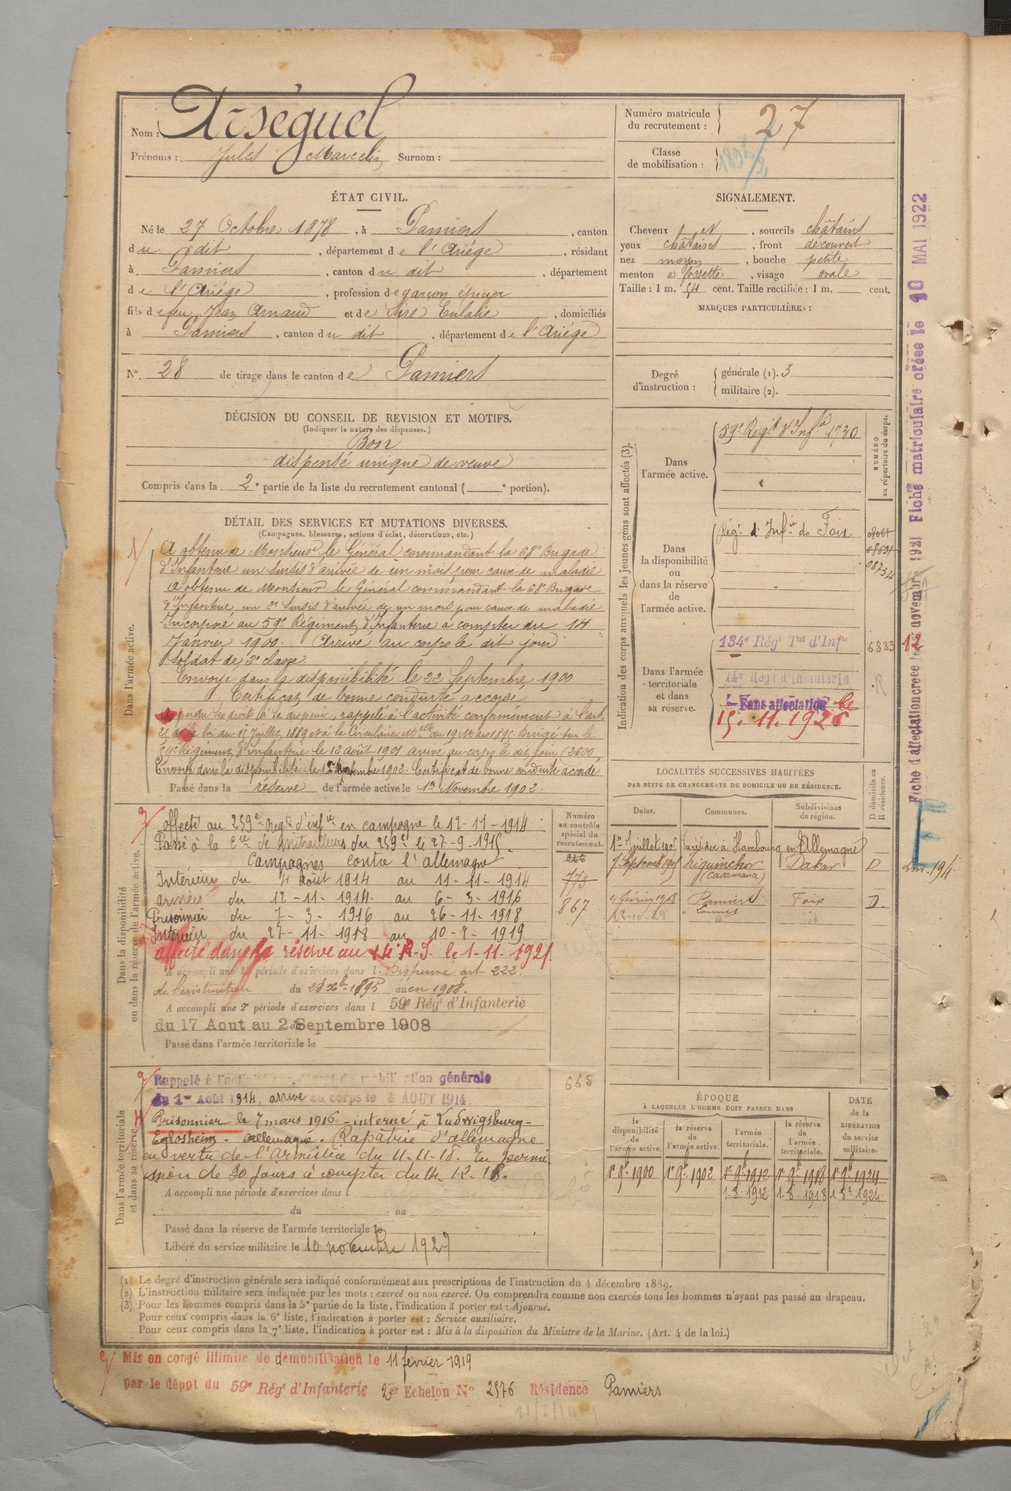 Nom : Arséguel
Prénoms : Jules Marcelin Surnom :
Numéro matricule du recrutement : 27
Classe de mobilisation :
ÉTAT CIVIL.
Né le 27 Octobre 1878, à Pamiers, canton
du dit, département de l'Ariège, résidant
à Pamiers, canton du dit, département
de l'Ariège, profession de garçon épicier
fils de feu Jean Arnaud et de Sire Eulalie, domiciliés
à Pamiers, canton du dit, département de l'Ariège
N° 28 de tirage dans le canton de Pamiers
SIGNALEMENT.
Cheveux et, sourcils châtains
yeux châtains, front découvert
nez moyen, bouche petite
menton à fossette, visage ovale
Taille : 1 m. 54 cent. Taille rectifiée : 1 m. cent.
MARQUES PARTICULIÈRES :
Degré d'instruction : générale (1). 3
militaire (2).
DÉCISION DU CONSEIL DE REVISION ET MOTIFS.
(Indiquer la nature des dispenses.)
Bon
dispensé unique de veuve
Compris dans la 2e partie de la liste du recrutement cantonal ( e portion).
DÉTAIL DES SERVICES ET MUTATIONS DIVERSES.
(Campagnes, blessures, actions d'éclat, décorations, etc.)
Dans l'armée active.
A obtenu de Monsieur le Général commandant la 68e Brigade
d'Infanterie un sursis d'arrivée de un mois pour cause de maladie
A obtenu de Monsieur le Général commandant la 68e Brigade
d'Infanterie un 2e sursis d'arrivée de un mois pour cause de maladie
Incorporé au 59e Régiment d'Infanterie à compter du 14
Janvier 1900. Arrivé au corps le dit jour
Soldat de 2e classe
Envoyé dans la disponibilité le 22 Septembre 1900
Certificat de bonne conduite accordé
rappelé à l'activité conformément à l'art.
loi du 15 Juillet 1889 et à la Circulaire du 19 Mars 1895 Dirigé sur le
59e Régiment d'Infanterie le 12 août 1901 arrivé au corps le dit jour
Envoyé dans la disponibilité le 1902. Certificat de bonne conduite accordé
Passé dans la réserve de l'armée active le 1er Novembre 1902
Indication des corps auxquels les jeunes gens sont affectés (3).
NUMÉRO au répertoire du corps.
Dans l'armée active.
59e Régt d'Infie 1730
Dans la disponibilité ou dans la réserve de l'armée active.
Régt d'Infie de Foix
Dans l'armée territoriale et dans sa réserve.
134e Régt Tal d'Infie 6883 12
14e Régt d'Infanterie
Sans affectation le
15.11.1926
Fiche d'affectation créée le novembre 1921 Fiche matriculaire créée le 10 MAI 1922
Dans la disponibilité ou dans la réserve de l'armée active.
Affecté au 259e Régt d'Infie en campagne le 12-11-1914
Passé à la Cie de Mitrailleurs du 259e le 27-9-1915
Campagnes contre l'allemagne
Intérieur du 4 août 1914 au 11-11-1914
armées du 12-11-1914 au 6-3-1916
Prisonnier du 7-3-1916 au 26-11-1918
Intérieur du 27-11-1918 au 10-2-1919
affecté dans la réserve au 14e R.I. le 1-11-1921
A accompli une 1re période d'exercices dans l Dispensé art 222
de l'instruction du 28 Xbre 1895 au en 1908.
A accompli une 2e période d'exercices dans l 59e Régt d'Infanterie
du 17 Aout au 2 Septembre 1908
Passé dans l'armée territoriale le
Numéro au contrôle spécial du recrutement.
773
867
665
LOCALITÉS SUCCESSIVES HABITÉES
PAR SUITE DE CHANGEMENTS DE DOMICILE OU DE RÉSIDENCE.
Dates. Communes. Subdivisions de région. D domicile ou R résidence.
1er Juillet 1901 résider à Hambourg en Allemagne
7 Septembre 1905 Ziguinchor (Casamance) Dakar D
4 février 1908 Pamiers Foix D
Dans l'armée territoriale et dans sa réserve.
Rappelé à l'activité mobilisation générale
du 1er Août 1914, arrivé au corps le 4 AOUT 1914.
Prisonnier le 7 mars 1916 - interné à Ludwigsburg-
Eglosheim - allemagne - Rapatrié d'allemagne
en vertu de l'Armistice du 11-11-18. En permis
sion de 30 jours à compter du 14-12-18.
A accompli une période d'exercices dans l
du au
Passé dans la réserve de l'armée territoriale le
Libéré du service militaire le 10 novembre 1927
ÉPOQUE
À LAQUELLE L'HOMME DOIT PASSER DANS
DATE de la LIBÉRATION DU SERVICE militaire.
la disponibilité de l'armée active. la réserve de l'armée active. l'armée territoriale. la réserve de l'armée territoriale.
1er 9bre 1900 1er 9bre 1902 1er 9bre 1912 1er 9bre 1918 1er 9bre 1924
1-8-1912 1-8-1918
(1) Le degré d'instruction générale sera indiqué conformément aux prescriptions de l'instruction du 4 décembre 1889.
(2) L'instruction militaire sera indiquée par les mots : exercé ou non exercé. On comprendra comme non exercés tous les hommes n'ayant pas passé au drapeau.
(3) Pour les hommes compris dans la 5e partie de la liste, l'indication à porter est : Ajourné.
Pour ceux compris dans la 6e liste, l'indication à porter est : Service auxiliaire.
Pour ceux compris dans la 7e liste, l'indication à porter est : Mis à la disposition du Ministre de la Marine. (Art. 4 de la loi.)
Mis en congé illimité de démobilisation le 11 février 1919
par le dépôt du 59e Régt d'Infanterie 2e Echelon N° 2876 Résidence Pamiers